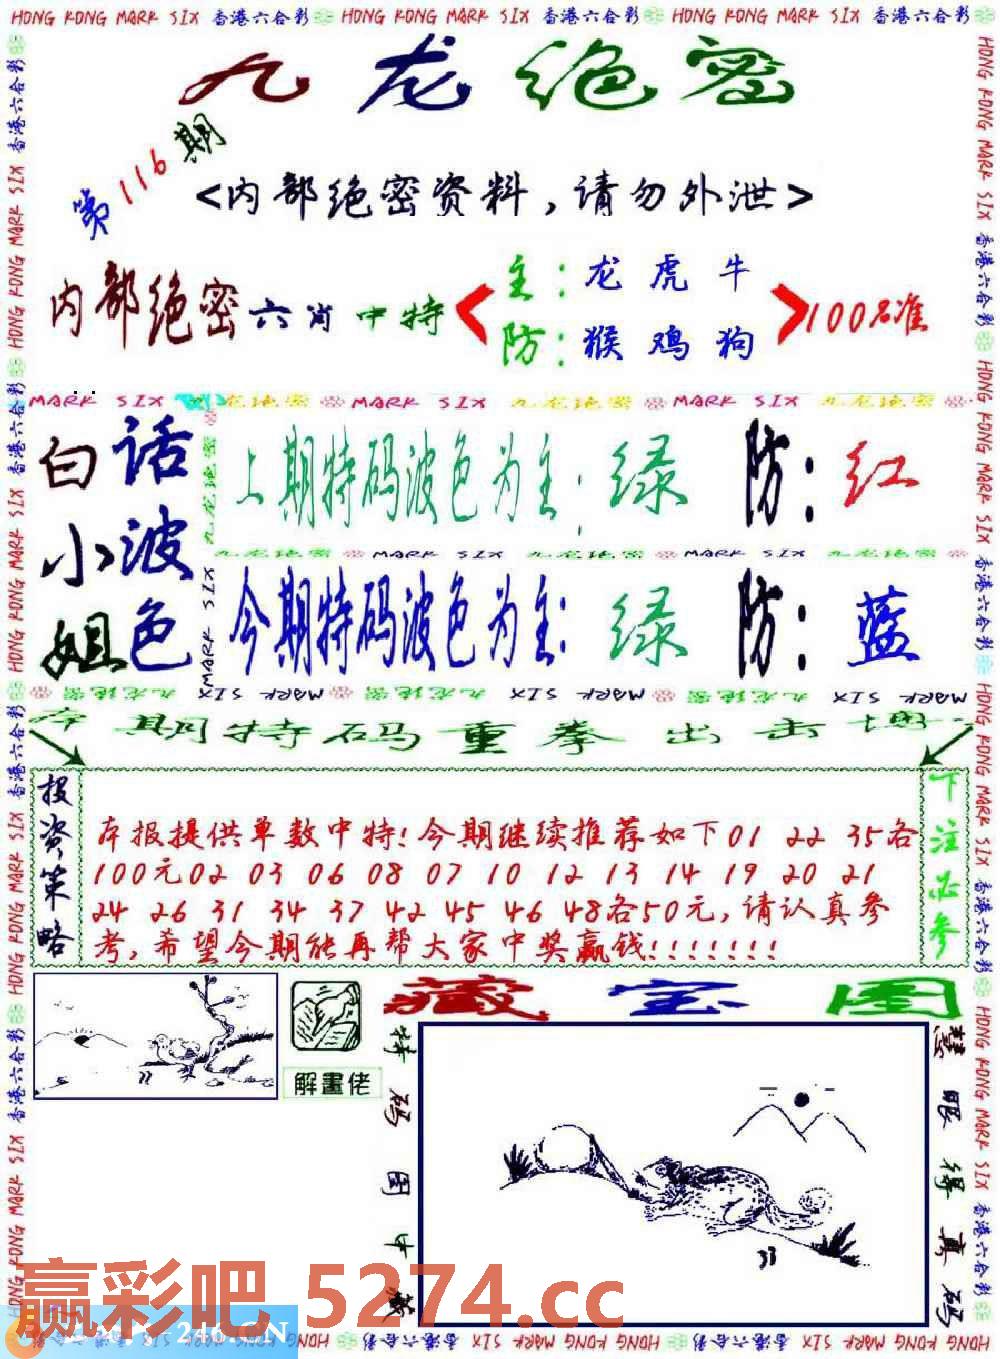 HONG KONG MARK SIX 香港六合彩 HONG KONG MARK SIX 香港六合彩 HONG KONG MARK SIX 香港六合彩
九龙绝密
第116期
<内部绝密资料,请勿外泄>
内部绝密六肖中特
主:龙虎牛
防:猴鸡狗
100%准
MARK SIX 九龙绝密 MARK SIX 九龙绝密 MARK SIX 九龙绝密
白小姐
话波色
上期特码波色为主:绿 防:红
九龙绝密 MARK SIX 九龙绝密 MARK SIX 九龙绝密
今期特码波色为主:绿 防:蓝
本期特码重拳出击
投资策略
本报提供单数中特!今期继续推荐如下01 22 35各
100元02 03 06 08 07 10 12 13 14 19 20 21
24 26 31 34 37 42 45 46 48各50元,请认真参
考,希望今期能再帮大家中奖赢钱!!!!!!!
下注必参
解畫佬
藏宝图
特码图中藏
慧眼得真码
赢彩吧 5274.cc
246.CN